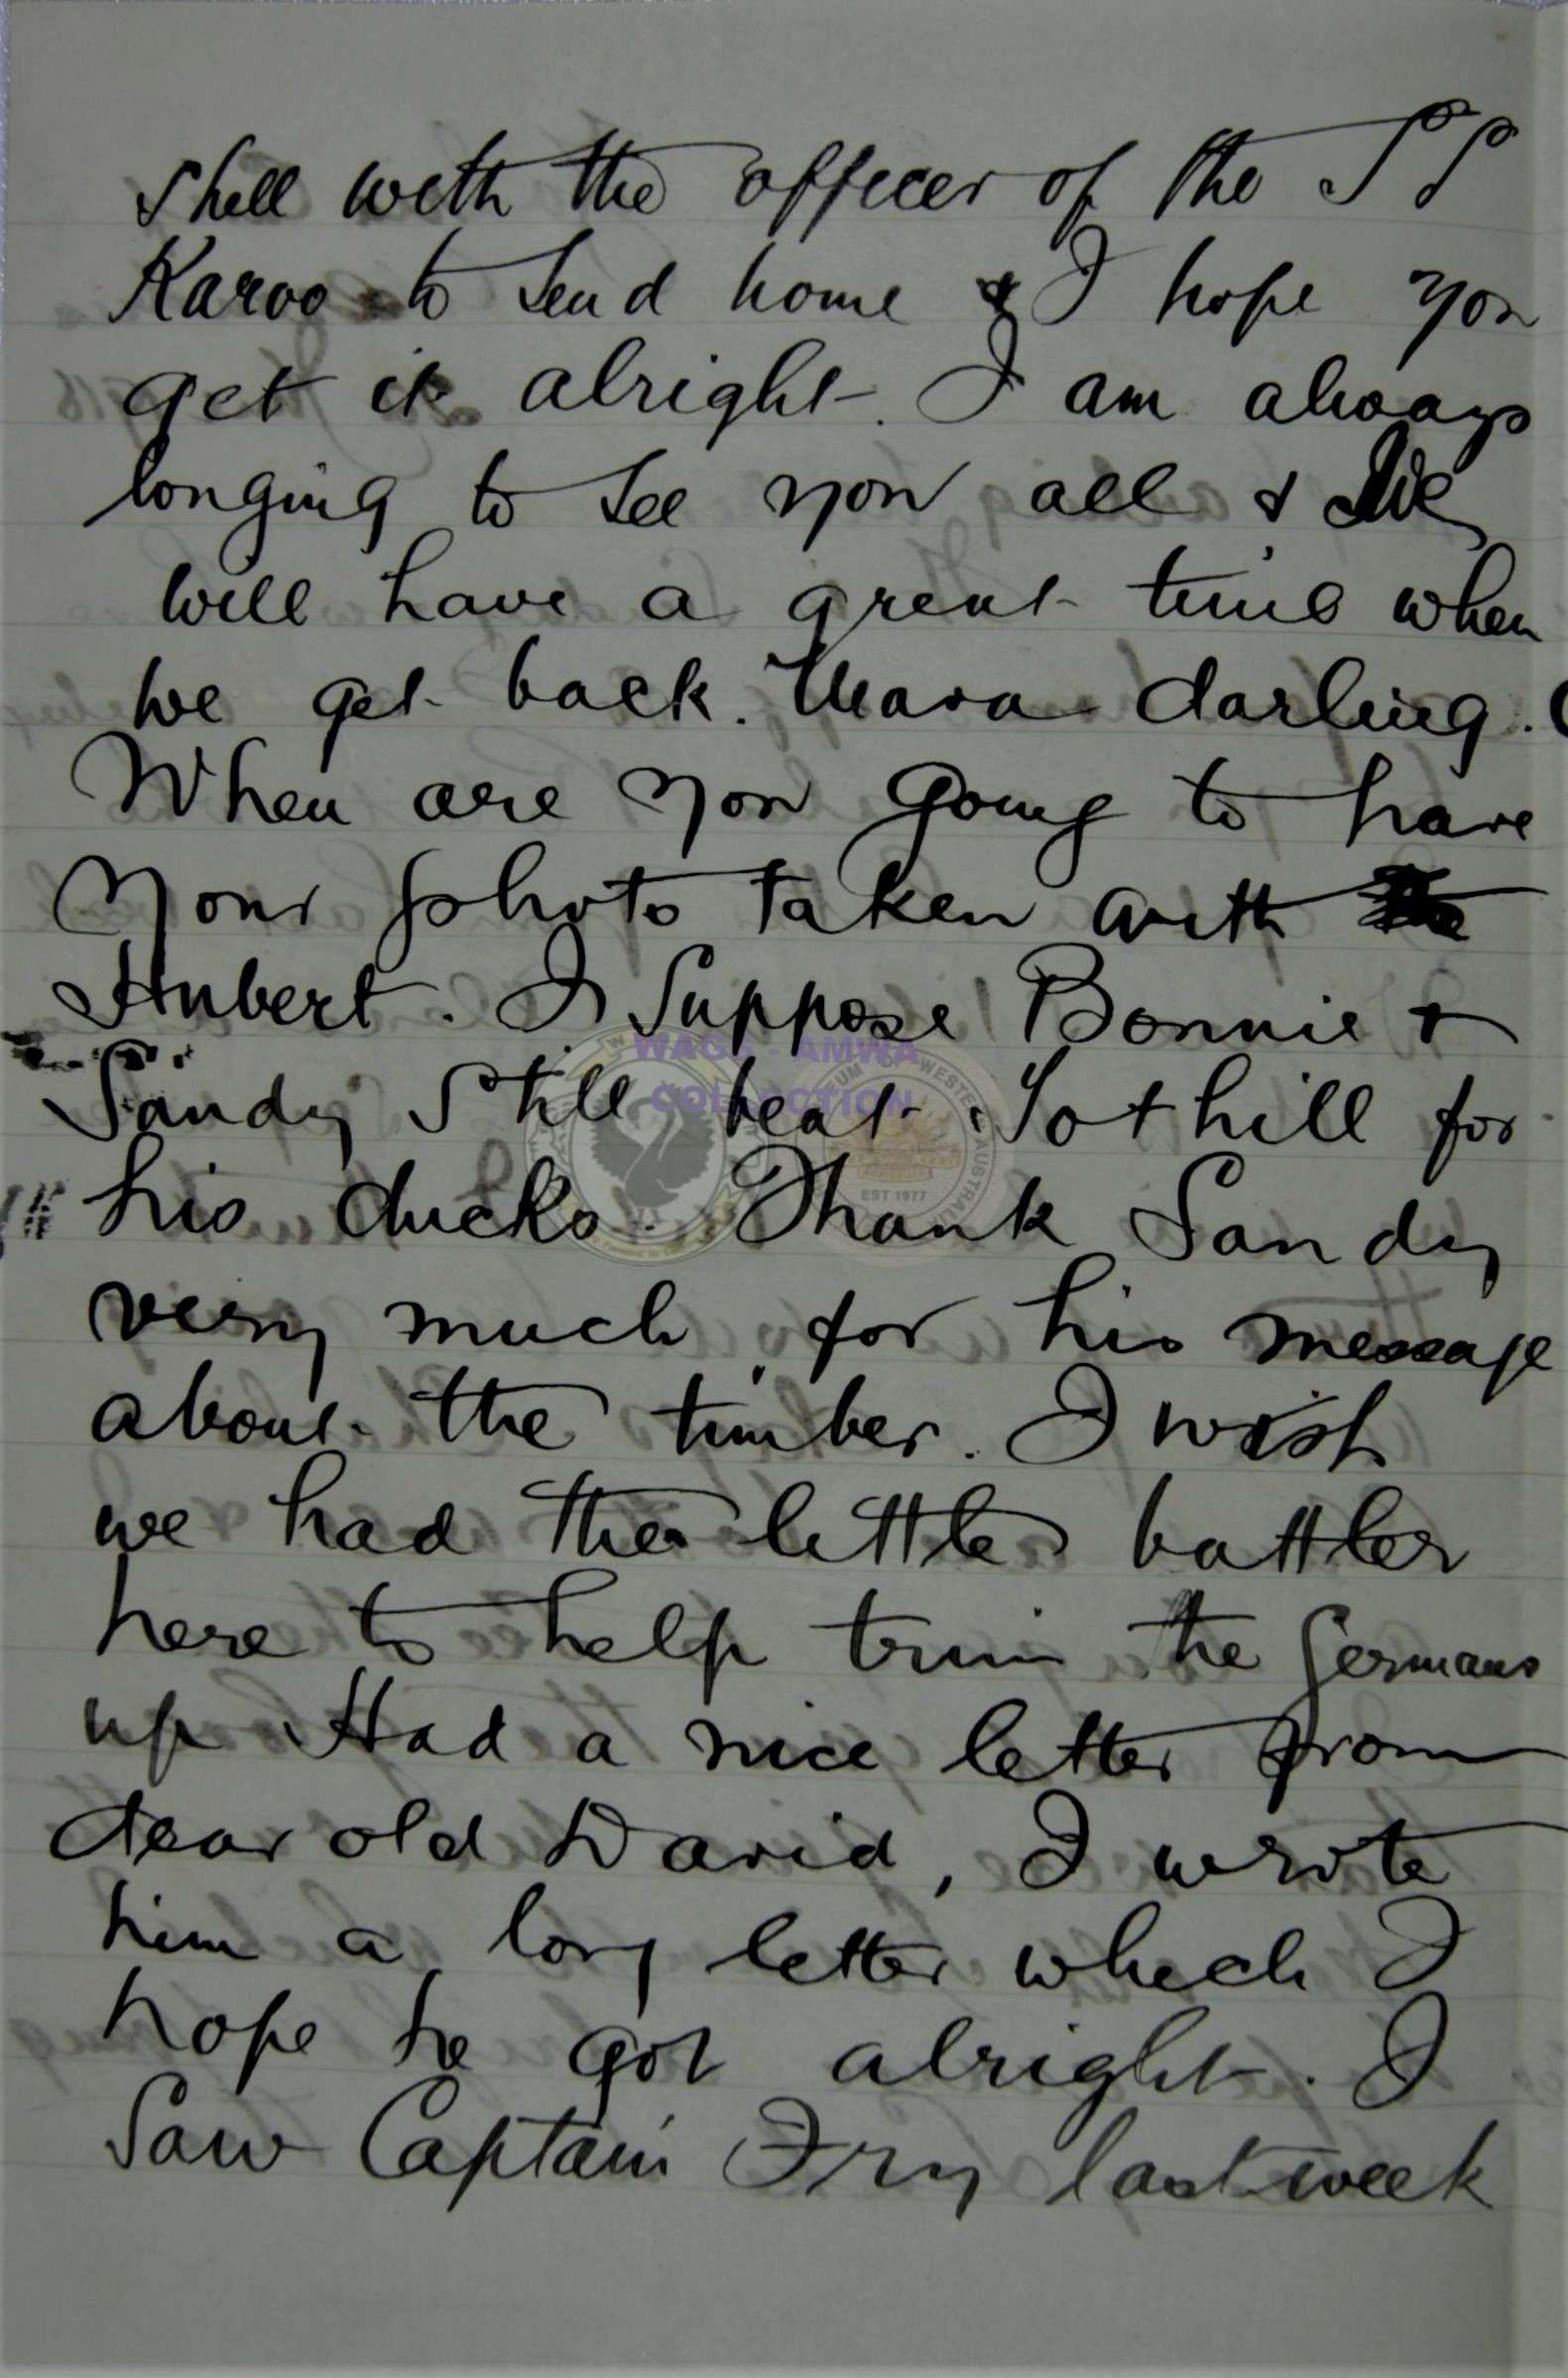 shell with the officer of the SS
Karoo to send home & I hope you
get it alright. I am always
longing to see you all & We
will have a great time when
we get back. Meava darling.
When are you going to have
your photo taken with the
Hubert. I suppose Bonnie &
Sandy still beat Tothill for
his ducks. Thank Sandy
very much for his message
about the timber. I wish
we had the little battler
here to help trim the Germans
up Had a nice letter from
dear old David, I wrote
him a long letter which I
hope he got alright. I
saw Captain Fry last week
WAGS - AMWA
COLLECTION
EST 1977